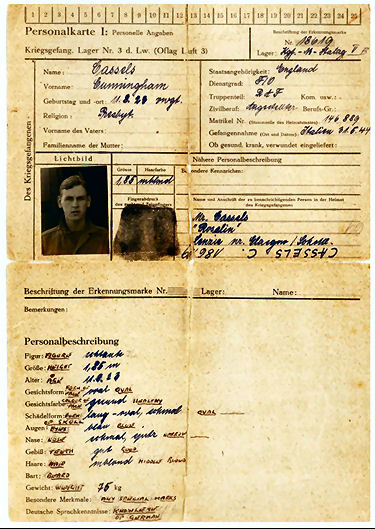 1 2 3 4 5 6 7 8 9 10 11 12 13 14 15 16 17 18 19 20 21 22 23 24 25
Personalkarte I: Personelle Angaben
Beschriftung der Erkennungsmarke
Kriegsgef. Lager Nr. 3 d. Lw. (Oflag Luft 3)
Nr.
Lager:
Des Kriegsgefangenen
Name: Cassels
Vorname: Cunningham
Geburtstag und -ort: 11.8.23
Religion: Presbyt.
Vorname des Vaters:
Familienname der Mutter:
Staatsangehörigkeit: England
Dienstgrad: F/O
Truppenteil: RAF Kom. usw.:
Zivilberuf: Angestellter Berufs-Gr.:
Matrikel Nr. (Stammrolle des Heimatstaates): 146 889
Gefangennahme (Ort und Datum): Italien 31.5.44
Ob gesund, krank, verwundet eingeliefert:
Lichtbild
Grösse Haarfarbe
1,85 mblond
Fingerabdruck
Nähere Personalbeschreibung
Besondere Kennzeichen:
Name und Anschrift der zu benachrichtigenden Person in der Heimat
des Kriegsgefangenen
Mr. Cassels
"Rosslin"
Lenzie nr. Glasgow/Schottl.
CASSELS C.
Beschriftung der Erkennungsmarke Nr. Lager: Name:
Bemerkungen:
Personalbeschreibung
Figur: FIGURE schlank
Größe: HEIGHT 1,85 m
Alter: AGE 11.8.23
Gesichtsform: FORM OF FACE oval OVAL
Gesichtsfarbe: COLOUR OF FACE gesund HEALTHY
Schädelform: FORM OF SKULL lang-oval, schmal OVAL
Augen: EYES blau BLUE
Nase: NOSE schmal, spitz NARROW
Gebiß: TEETH gut GOOD
Haare: HAIR mblond MIDDLE BLOND
Bart: BEARD
Gewicht: WEIGHT 75 kg
Besondere Merkmale: ANY SPECIAL MARKS
Deutsche Sprachkenntnisse: KNOWLEDGE OF GERMAN